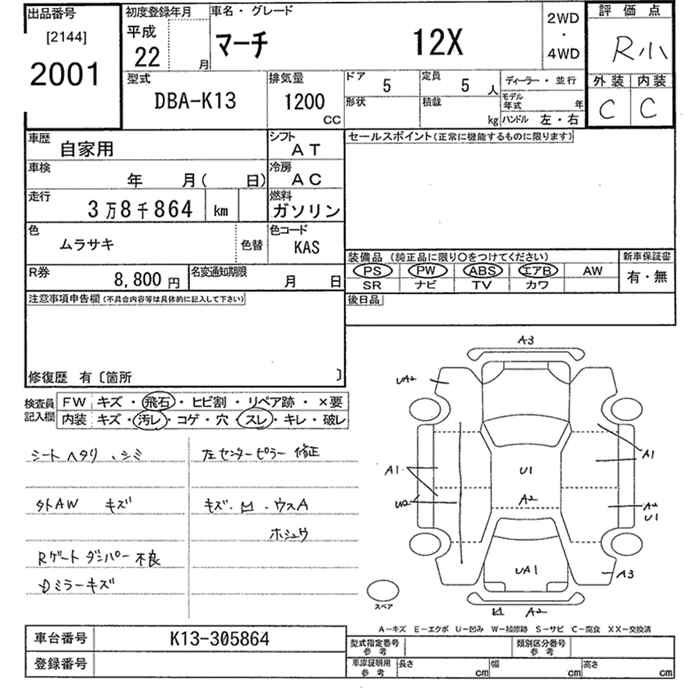 出品番号
[2144]
2001
初度登録年月
平成
22 月
車名・グレード
マーチ 12X
2WD
・
4WD
評価点
R小
外装 内装
C C
型式
DBA-K13
排気量
1200
CC
ドア 5
定員 5 人
ディーラー・並行
形状
積載 kg
モデル年式 年
ハンドル 左・右
車歴
自家用
シフト
AT
車検
年 月( 日)
冷房
AC
走行
3万8千864 km
燃料
ガソリン
色
ムラサキ
色替
色コード
KAS
R券
8,800 円
名変通知期限
月 日
セールスポイント(正常に機能するものに限ります)
装備品(純正品に限り〇をつけてください)
PS PW ABS エアB AW
SR ナビ TV カワ
新車保証書
有・無
後日品
注意事項申告欄(不具合内容等は具体的に記入して下さい)
修復歴 有〔箇所 〕
検査員記入欄
FW キズ・飛石・ヒビ割・リペア跡・×要
内装 キズ・汚レ・コゲ・穴・スレ・キレ・破レ
シートヘタリ、シミ
左センターピラー修正
外AW キズ
キズ・凹・ウスA
ホシュウ
Rゲートダンパー不良
Dミラーキズ
A3
UA2
A1
A1
U1
A2
U2
A2
U1
UA1
A3
凹 A2
スペア
A-キズ E-エクボ U-凹み W-補修跡 S-サビ C-腐食 XX-交換済
車台番号 K13-305864
登録番号
型式指定番号
参考
類別区分番号
参考
車庫証明用
参考
長さ cm
幅 cm
高さ cm